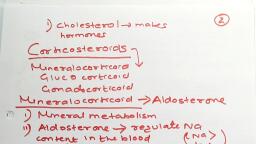 ②
i) Cholesterol → makes
hormones
Corticosteroids
Mineralocorticoid
Gluco corticoid
Gonadocorticoid
Mineralocorticoid → Aldosterone
i) Mineral metabolism
ii) Aldosterone → regulate Na
content in the blood (Na>